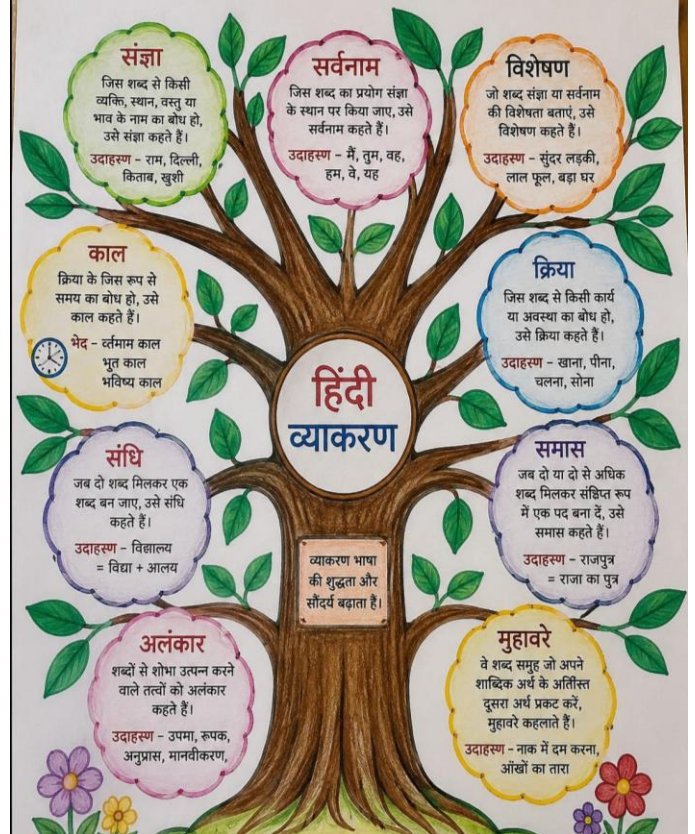 संज्ञा
जिस शब्द से किसी
व्यक्ति, स्थान, वस्तु या
भाव के नाम का बोध हो,
उसे संज्ञा कहते हैं।
उदाहस्ण – राम, दिल्ली,
किताब, खुशी
सर्वनाम
जिस शब्द का प्रयोग संज्ञा
के स्थान पर किया जाए, उसे
सर्वनाम कहते हैं।
उदाहस्ण – मैं, तुम, वह,
हम, वे, यह
विशेषण
जो शब्द संज्ञा या सर्वनाम
की विशेषता बताएं, उसे
विशेषण कहते हैं।
उदाहस्ण – सुंदर लड़की,
लाल फूल, बड़ा घर
काल
क्रिया के जिस रूप से
समय का बोध हो, उसे
काल कहते हैं।
भेद – र्वतमाम काल
भुत काल
भविष्य काल
क्रिया
जिस शब्द से किसी कार्य
या अवस्था का बोध हो,
उसे क्रिया कहते हैं।
उदाहस्ण – खाना, पीना,
चलना, सोना
हिंदी
व्याकरण
संधि
जब दो शब्द मिलकर एक
शब्द बन जाए, उसे संधि
कहते हैं।
उदाहस्ण – विद्याल्य
= विद्या + आलय
समास
जब दो या दो से अधिक
शब्द मिलकर संक्षिप्त रूप
में एक पद बना दें, उसे
समास कहते हैं।
उदाहस्ण – राजपुत्र
= राजा का पुत्र
व्याकरण भाषा
की शुद्धता और
सौंदर्य बढ़ाता है।
अलंकार
शब्दों से शोभा उत्पन्न करने
वाले तत्वों को अलंकार
कहते हैं।
उदाहस्ण – उपमा, रूपक,
अनुप्रास, मानवीकरण,
मुहावरे
वे शब्द समूह जो अपने
शाब्दिक अर्थ के अतिीस्त
दूसरा अर्थ प्रकट करें,
मुहावरे कहलाते हैं।
उदाहस्ण – नाक में दम करना,
आंखों का तारा